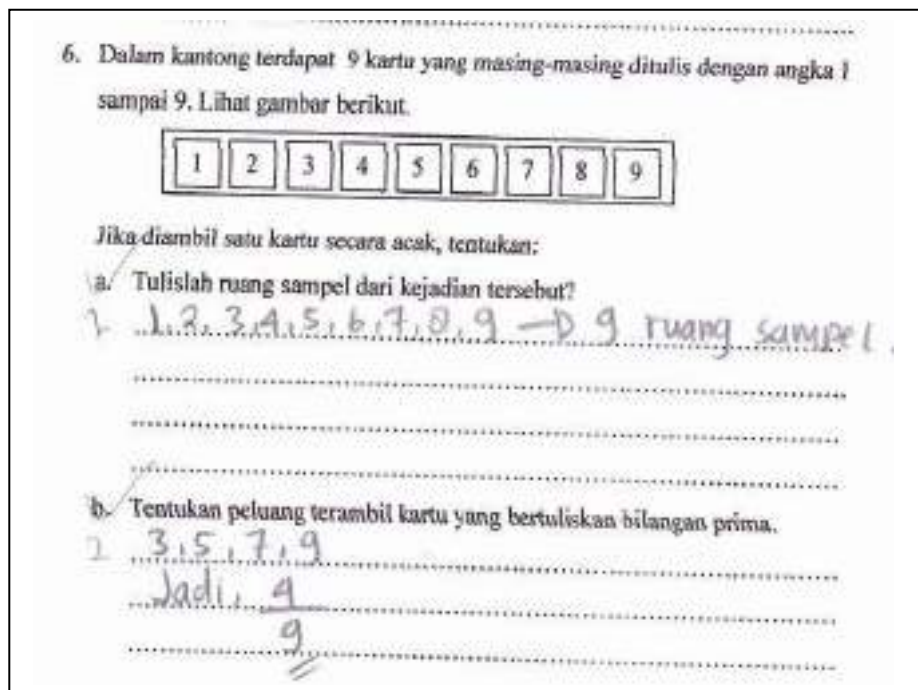 6. Dalam kantong terdapat 9 kartu yang masing-masing ditulis dengan angka 1
sampai 9. Lihat gambar berikut.
1 2 3 4 5 6 7 8 9
Jika diambil satu kartu secara acak, tentukan:
a. Tulislah ruang sampel dari kejadian tersebut?
1, 2, 3, 4, 5, 6, 7, 8, 9 → 9 ruang sampel.
b. Tentukan peluang terambil kartu yang bertuliskan bilangan prima.
3, 5, 7, 9
Jadi, 4
9